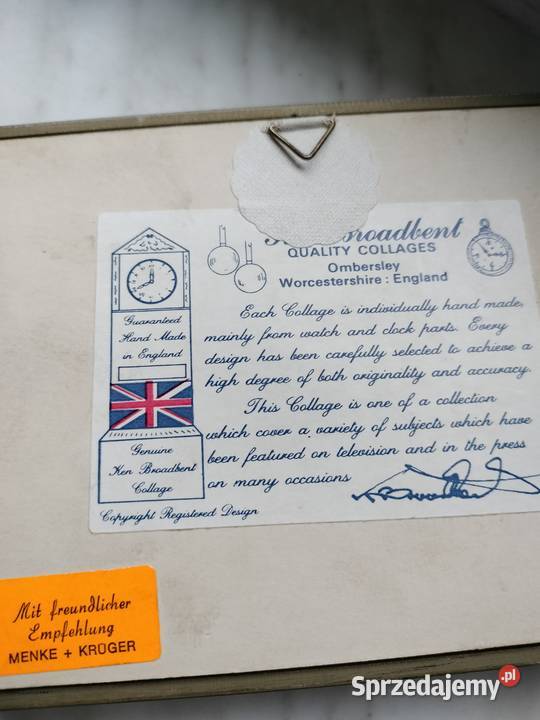 Broadbent
QUALITY COLLAGES
Ombersley
Worcestershire : England
Each Collage is individually hand made,
mainly from watch and clock parts. Every
design has been carefully selected to achieve a
high degree of both originality and accuracy.
This Collage is one of a collection
which cover a variety of subjects which have
been featured on television and in the press
on many occasions
Guaranteed
Hand Made
in England
Genuine
Ken Broadbent
Collage
Copyright Registered Design
Mit freundlicher
Empfehlung
MENKE + KRÜGER
Sprzedajemy.pl